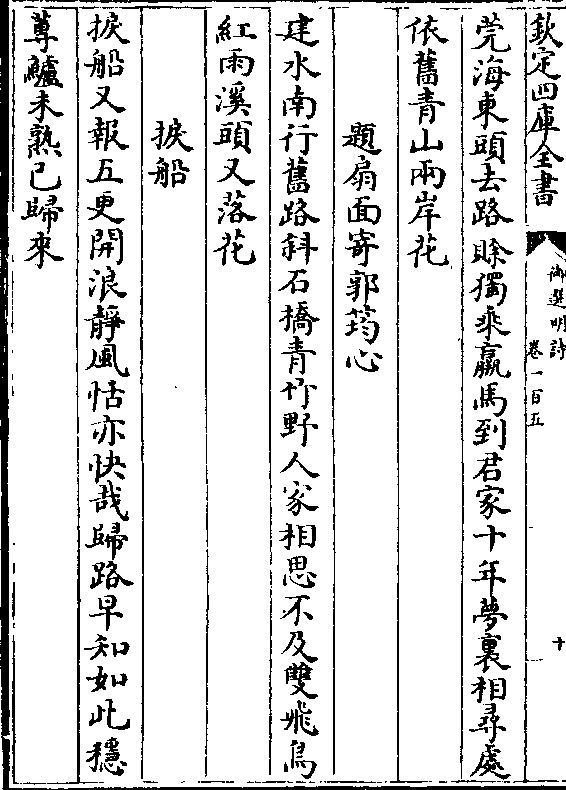 欽定四庫全書
御選明詩
卷一百五
十
莞海東頭去路賖獨乘羸馬到君家十年夢裏相尋處
依舊青山兩岸花
題扇面寄郭筠心
建水南行舊路斜石橋青竹野人家相思不及雙飛鳥
紅雨溪頭又落花
捩船
捩船又報五更開浪靜風恬亦快哉歸路早知如此穩
蓴鱸未熟已歸來